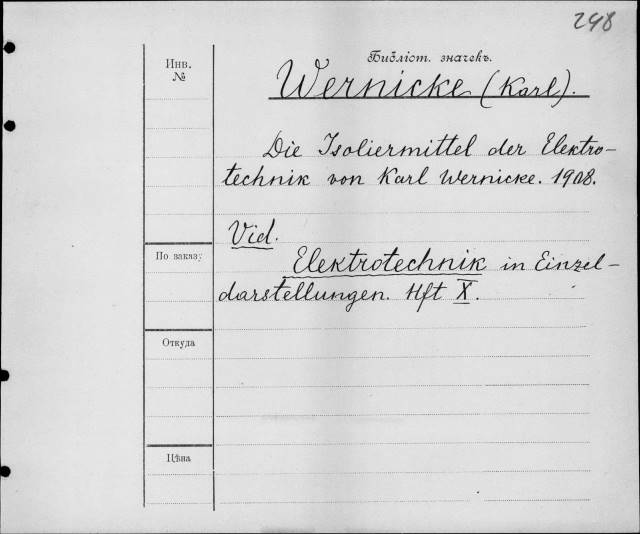 248
Библіот. значекъ.
Инв.
№
Wernicke (Karl).
Die Isoliermittel der Elektro-
technik von Karl Wernicke. 1908.
Vid.
По заказу
Elektrotechnik in Einzel-
darstellungen. Hft X.
Откуда
Цѣна